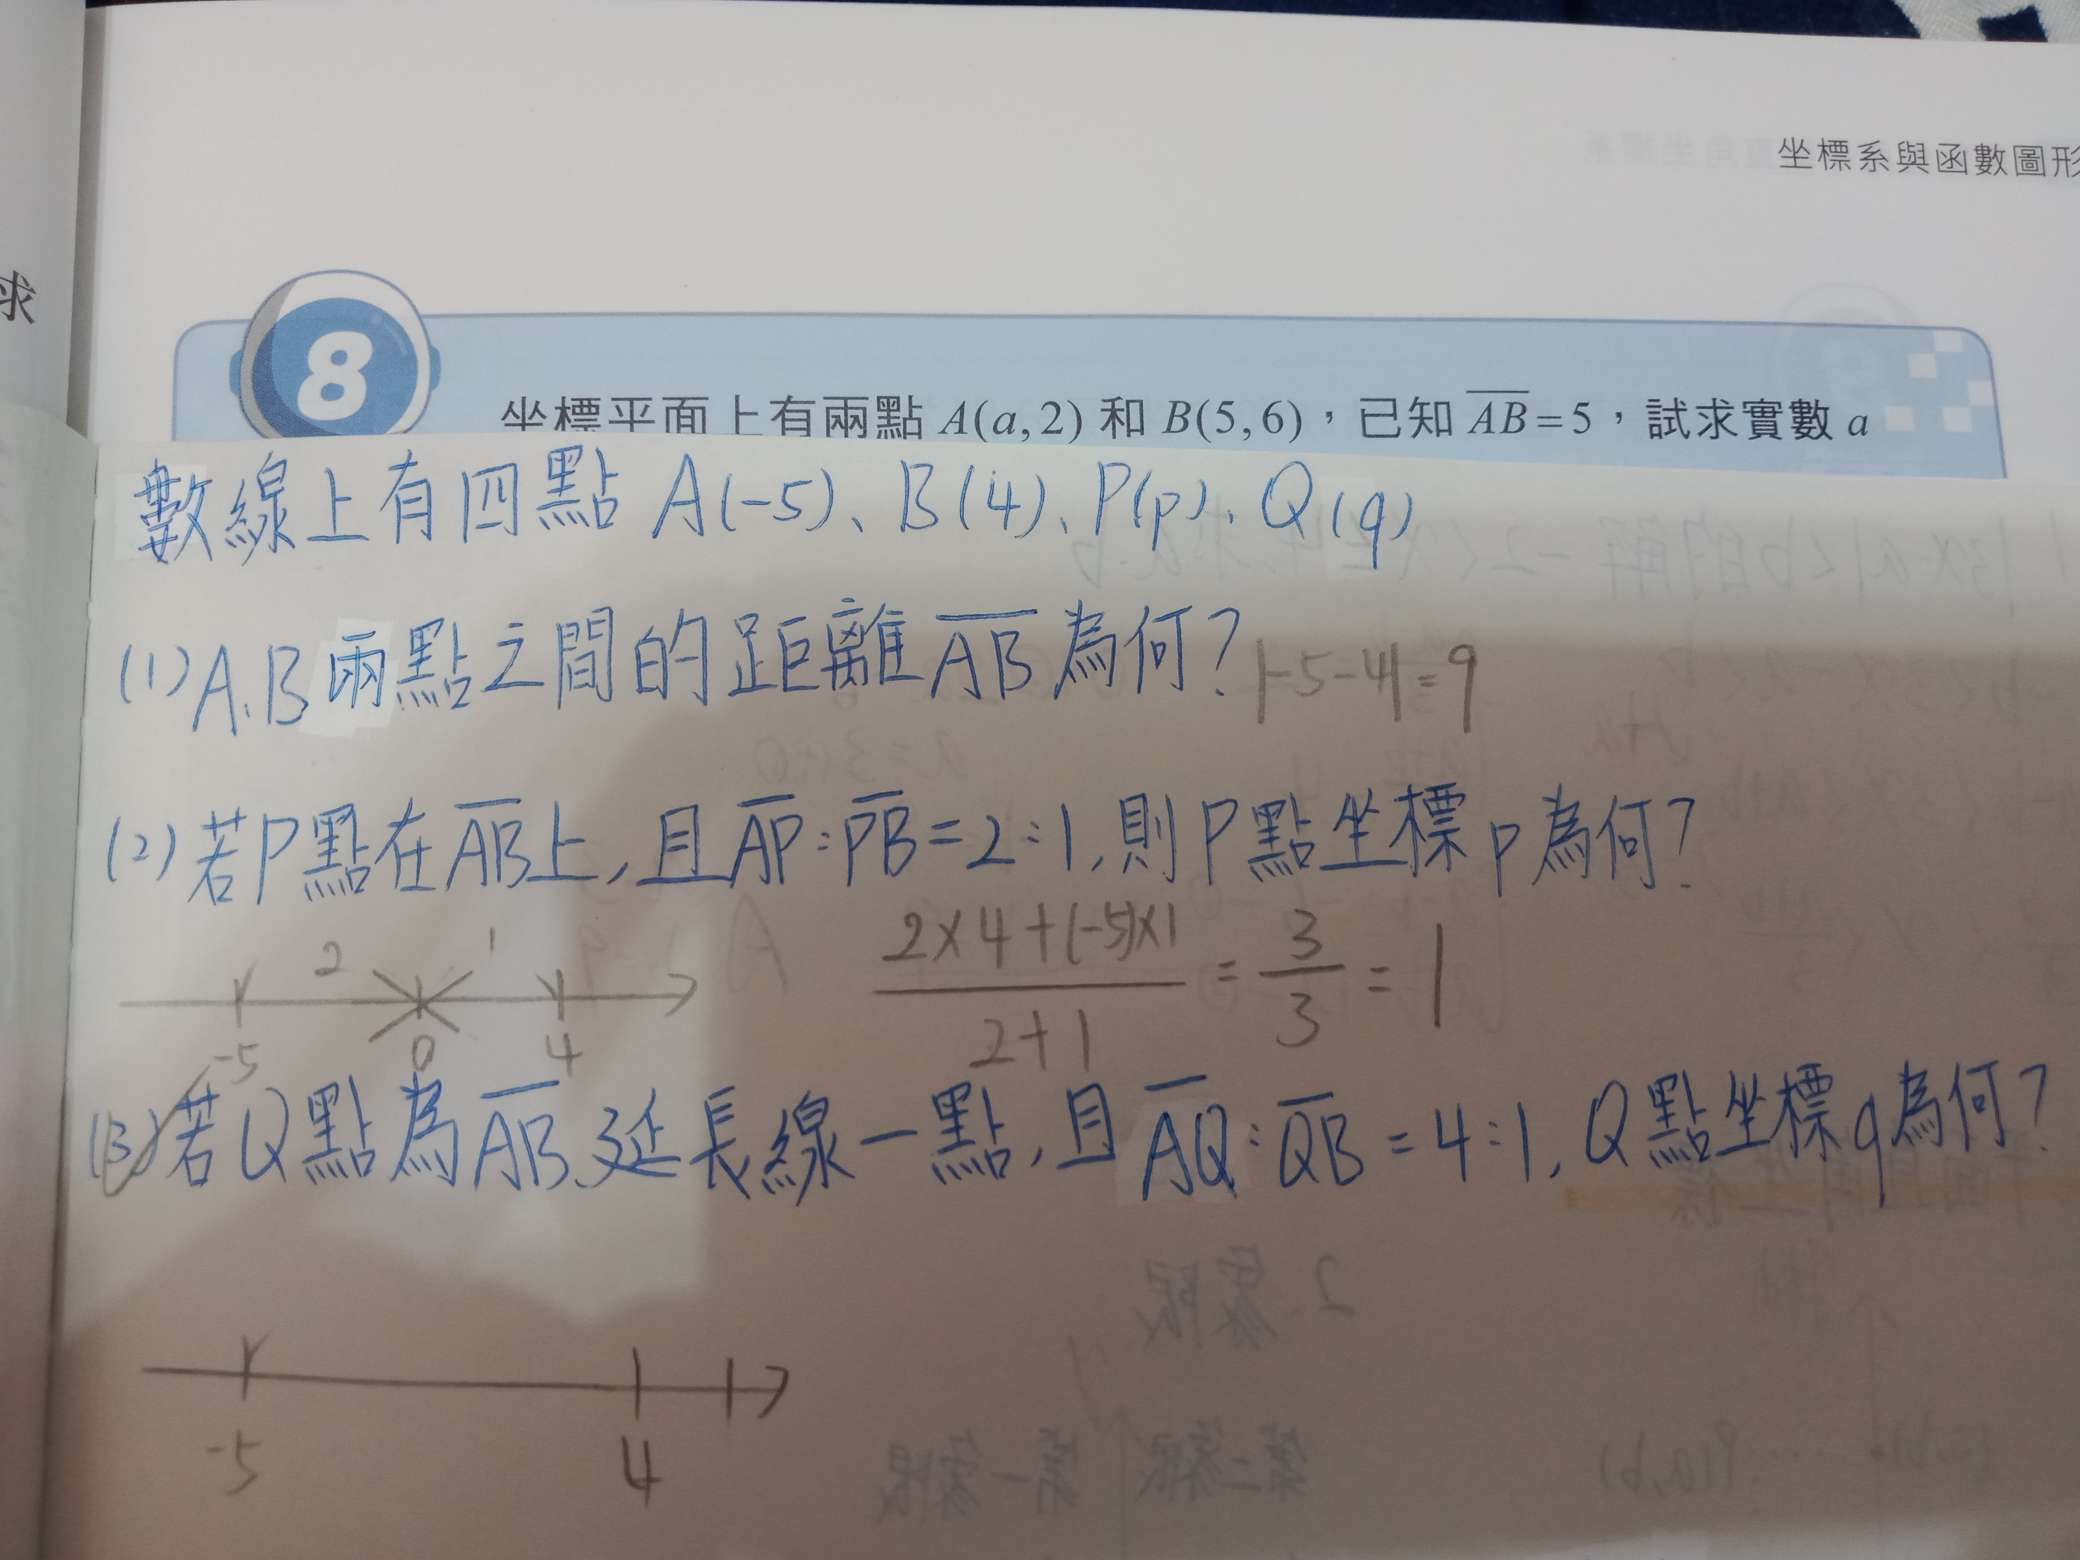 坐標系與函數圖形
求
8
坐標平面上有兩點 A(a,2) 和 B(5,6),已知 AB=5,試求實數 a
數線上有四點 A(-5)、B(4)、P(p)、Q(q)
(1) A、B兩點之間的距離AB為何? |-5-4|=9
(2) 若P點在AB上,且AP:PB=2:1,則P點坐標p為何?
2 1
-5 0 4
2×4+(-5)×1
2+1
= 3/3 = 1
(3) 若Q點為AB延長線一點,且AQ:QB=4:1,Q點坐標q為何?
-5 4